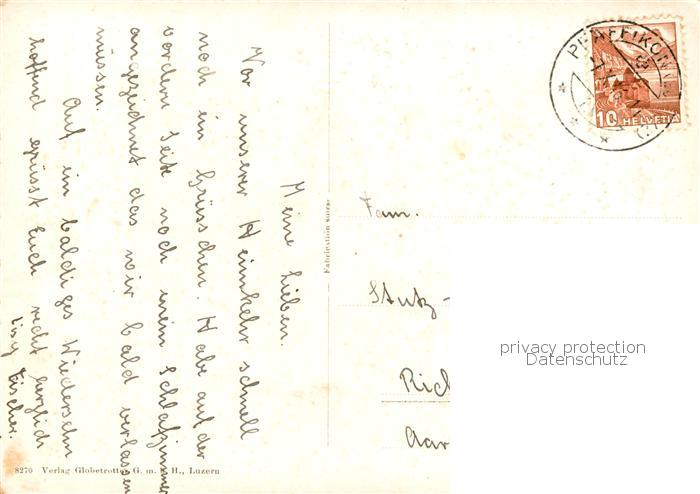 Meine Lieben.
Vor unserer Heimkehr schnell
noch ein Grüsschen. Habe auf der
vordern Seite noch mein Schlafzimmer
angezeichnet das wir bald verlassen
müssen.
Auf ein baldiges Wiedersehn
hoffend grüsst Euch recht herzlich
Fischer.
Fabrication suisse
8270 Verlag Globetrotter G. m. b. H., Luzern
PFÄFFIKON
10 HELVETIA
Fam.
Stutz -
Ric
Aar
privacy protection
Datenschutz